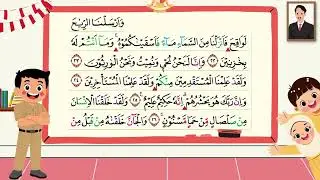 وَأَرْسَلْنَا الرِّيٰحَ
لَوَاقِحَ فَأَنْزَلْنَا مِنَ السَّمَآءِ مَآءً فَأَسْقَيْنٰكُمُوْهُ ۚ وَمَآ أَنْتُمْ لَهُ
بِخٰزِنِيْنَ ﴿٢٢﴾ وَاِنَّا لَنَحْنُ نُحْيٖ وَنُمِيْتُ وَنَحْنُ الْوٰرِثُوْنَ ﴿٢٣﴾
وَلَقَدْ عَلِمْنَا الْمُسْتَقْدِمِيْنَ مِنْكُمْ وَلَقَدْ عَلِمْنَا الْمُسْتَأْخِرِيْنَ ﴿٢٤﴾
وَاِنَّ رَبَّكَ هُوَ يَحْشُرُهُمْ ۗ اِنَّهُ حَكِيْمٌ عَلِيْمٌ ﴿٢٥﴾ وَلَقَدْ خَلَقْنَا الْاِنْسَانَ
مِنْ صَلْصَالٍ مِنْ حَمَإٍ مَسْنُوْنٍ ﴿٢٦﴾ وَالْجَآنَّ خَلَقْنٰهُ مِنْ قَبْلُ مِنْ